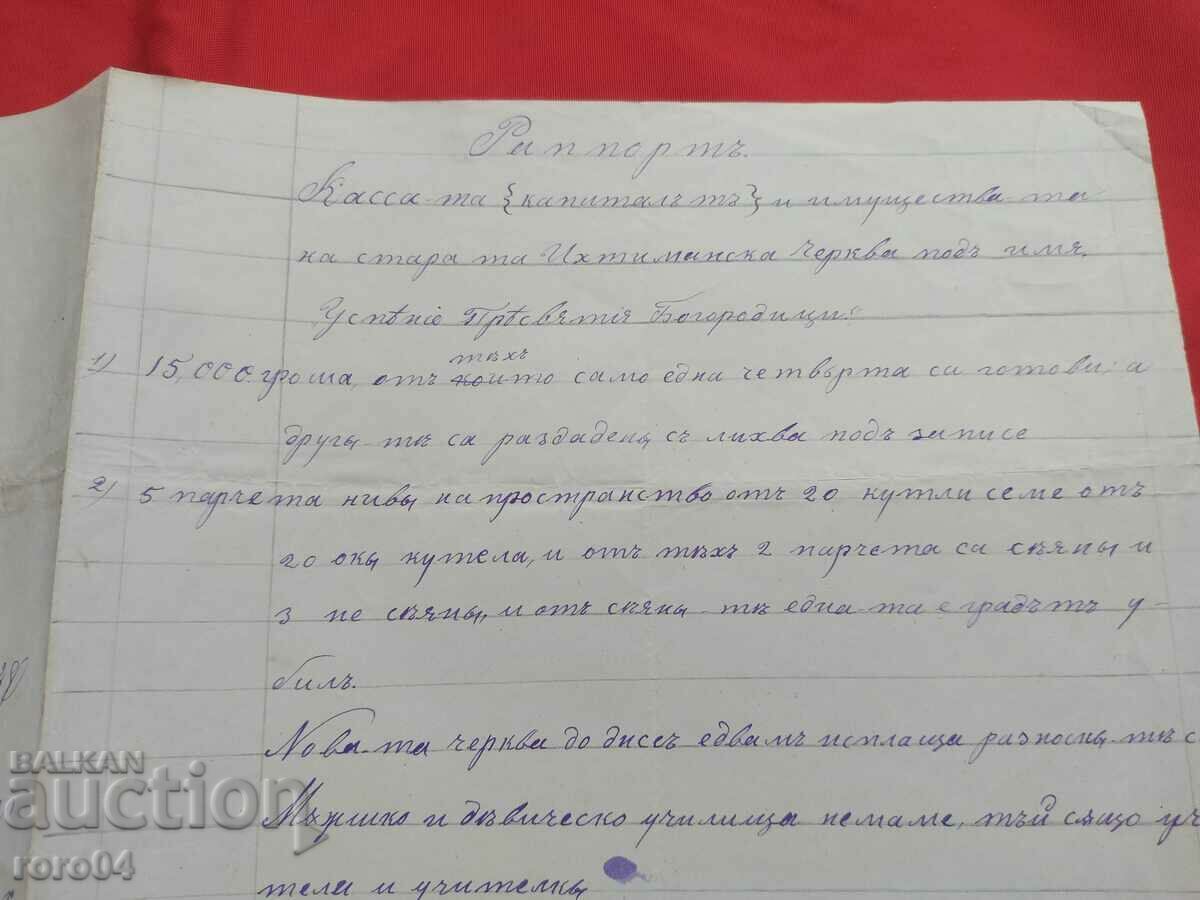 Раппортъ.
Касса-та {капиталътъ} и имущества-та
на стара та Ихтиманска Черква подъ имя.
Успѣніе Прѣсвятія Богородици:
1) 15,000 гроша, отъ тѣхъ само една четвърта са готови; а
другы-тѣ са раздадены съ лихва подъ записе
2) 5 парчета нивы на пространство отъ 20 кутли семе отъ
20 окы кутела, и отъ тѣхъ 2 парчета са сѣяны и
3 не сѣяны, и отъ сѣяны-тѣ една-та е градътъ у-
билъ.
Нова-та черква до днесъ едвамъ исплаща разноскы-тѣ с
Мъжско и дѣвическо училища немаме, тъй също уч
тели и учителкы
BALKAN
auction
roro04